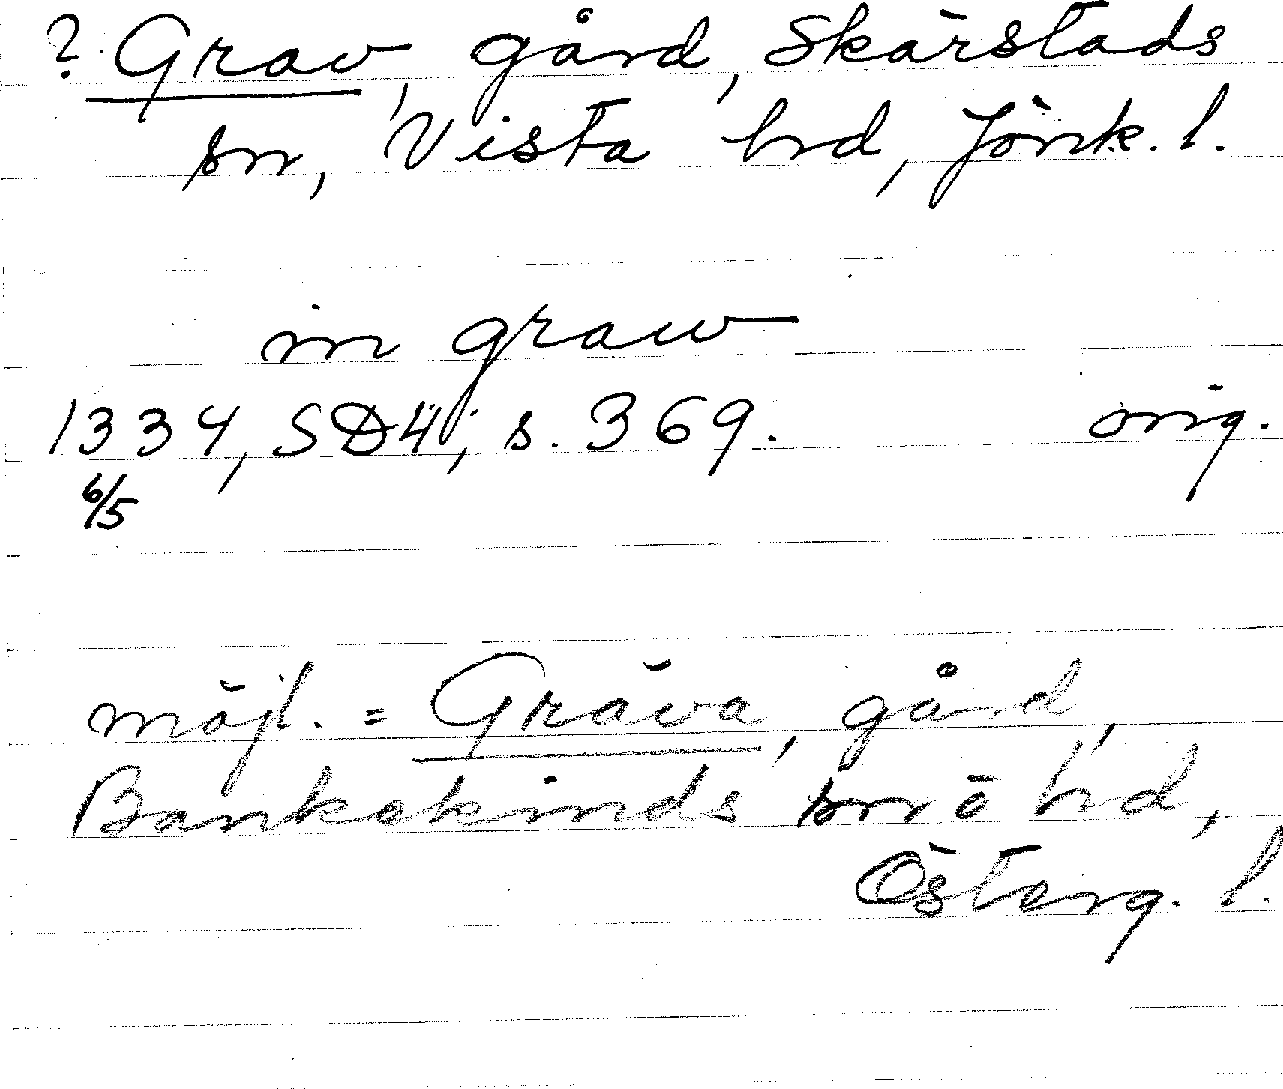 ? Grav, gård, Skärstads
sn, Vista hd, Jönk. l.
in graw
1334, SD4, s. 369. orig.
6/5
möjl. = Gräva, gård,
Bankekinds sn o hd,
Österg. l.